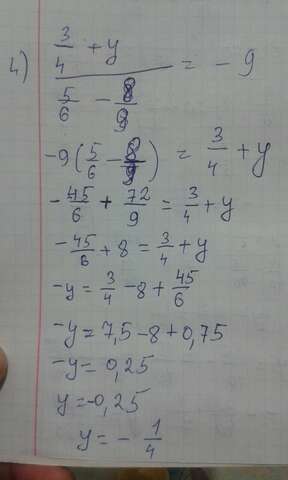 4) (3/4 + y)/(5/6 - 8/9) = - 9
-9(5/6 - 8/9) = 3/4 + y
- 45/6 + 72/9 = 3/4 + y
- 45/6 + 8 = 3/4 + y
-y = 3/4 - 8 + 45/6
-y = 7,5 - 8 + 0,75
-y = 0,25
y = -0,25
y = - 1/4